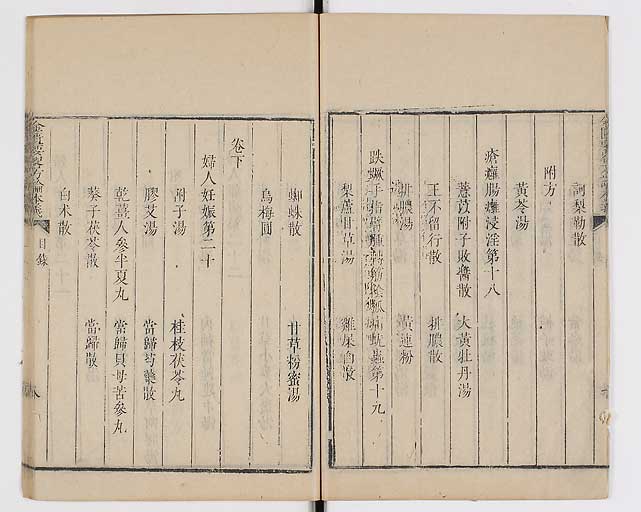 訶梨勒散
附方
黃芩湯
瘡癰腸癰浸淫第十八
薏苡附子敗醬散　大黃牡丹湯
王不留行散　排膿散
排膿湯　黃連粉
趺蹶手指臂腫轉筋陰狐疝蚘蟲第十九
梨蘆甘草湯　雞屎白散
蜘蛛散　甘草粉蜜湯
烏梅圓
卷下
婦人妊娠第二十
附子湯　桂枝茯苓丸
膠艾湯　當歸芍藥散
乾薑人參半夏丸　當歸貝母苦參丸
葵子茯苓散　當歸散
白朮散
金匱要畧方論本義　目錄